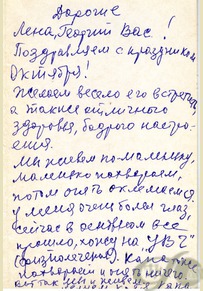 Дорогие
Лена, Георгий Вас!
Поздравляем с праздником
Октября!
Желаем весело его встретить,
а также отличного
здоровья, бодрого настро-
ения.
Мы живем по-маленьку,
маленько похвораем,
потом опять оклемаемся.
У меня очень болел глаз,
сейчас в основном все
прошло, хожу на УВЧ
(физлечение).
похвораем и опять ничего.
Вот так мы и живем